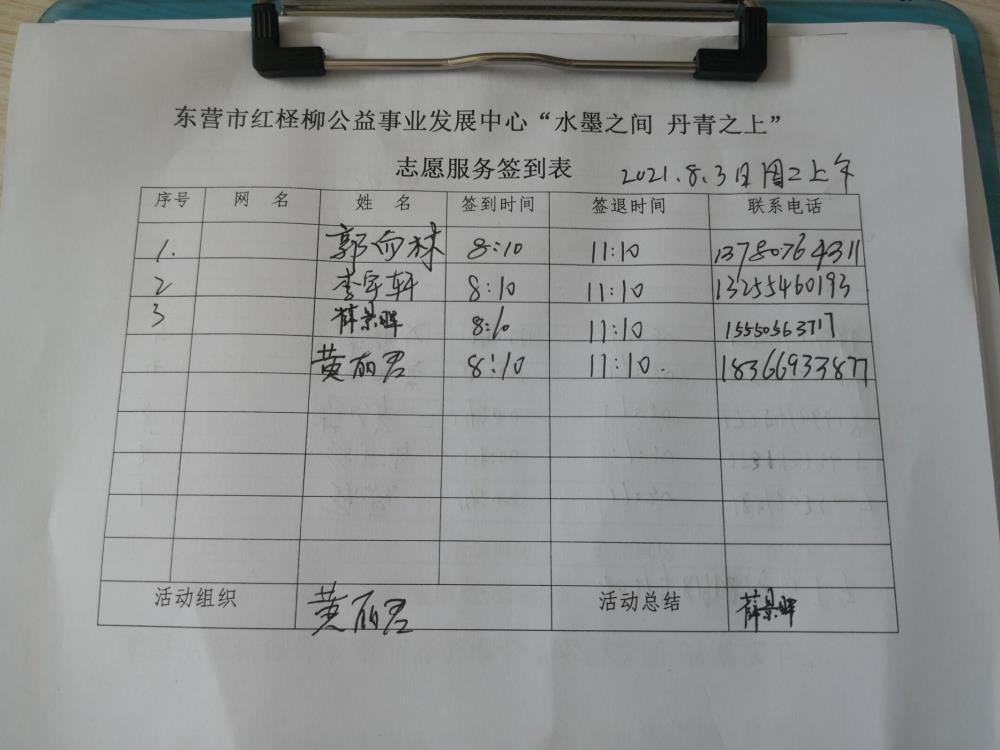 东营市红柽柳公益事业发展中心“水墨之间 丹青之上”
志愿服务签到表 2021.8.3日周二上午
序号 网 名 姓 名 签到时间 签退时间 联系电话
1. 郭向林 8:10 11:10 13780764311
2 李宇轩 8:10 11:10 13255460193
3 薛景晖 8:10 11:10 15550563717
黄丽君 8:10 11:10. 18366933877
活动组织 黄丽君 活动总结 薛景晖